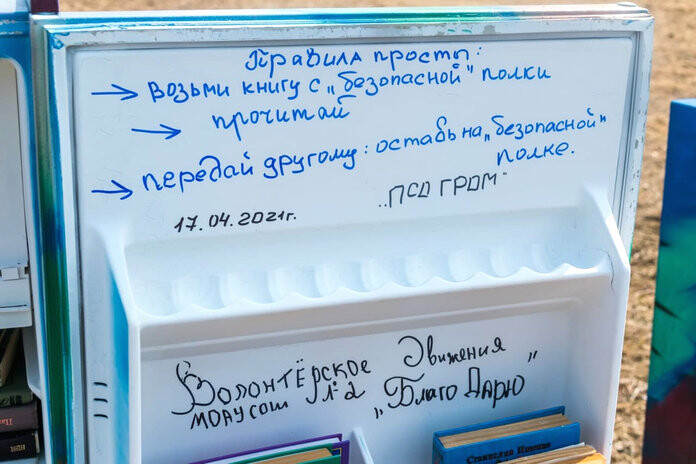 Правила просты:
→ возьми книгу с „безопасной" полки
→ прочитай
→ передай другому: оставь на „безопасной"
полке.
„ПСО ГРОМ"
17.04.2021г.
Волонтёрское Движения
МОАУСОШ №2 „БлагоДарю"